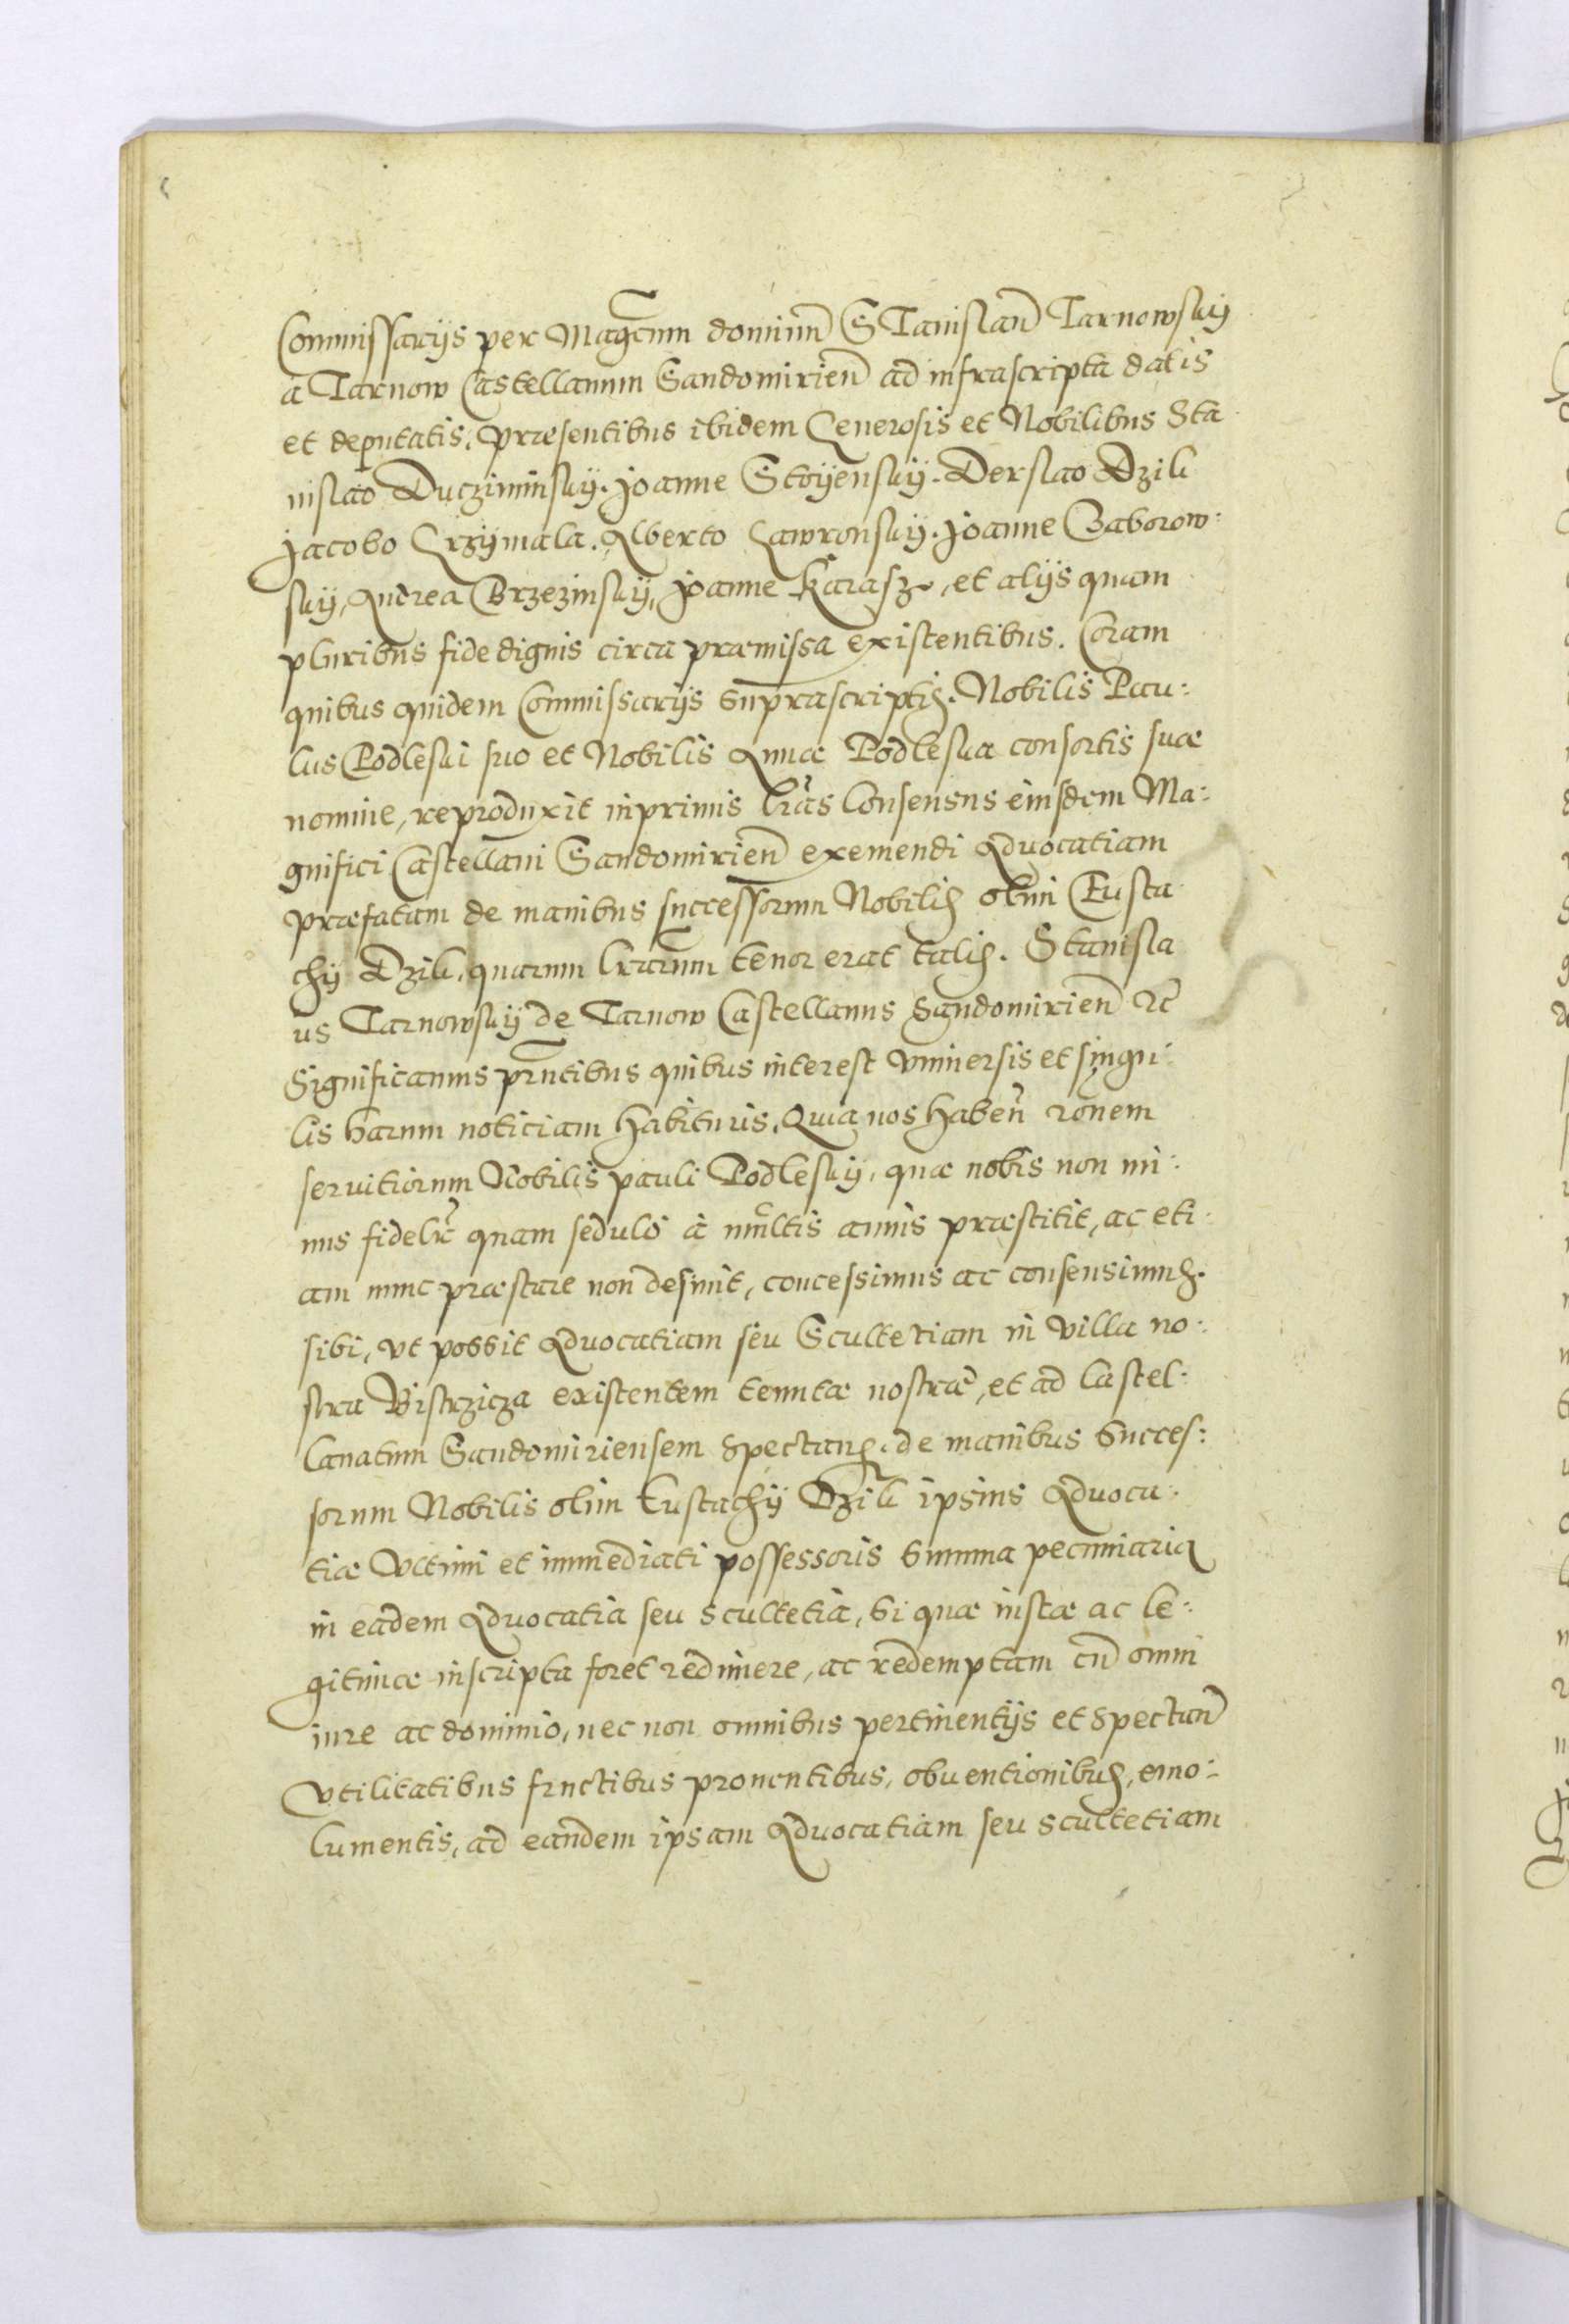 Commissarijs per Magcum dominũ Stanislaũ Tarnowskij
a Tarnow Castellanum Sandomirien̄ ad infrascripta datis
et deputatis, præsentibus ibidem Generosis et Nobilibus Sta
nislao Ducziminskij. Joanne Stoÿenskij. Derslao Dzik
Jacobo Grzÿmala. Alberto Gawronskij. Joanne Gaborow:
skij, Andrea Brzezinskij, Joanne Karasz, et alijs quam
pluribus fide dignis circa præmissa existentibus. Coram
quibus quidem Commissarijs suprascriptis. Nobilis Pau:
lus Podleski suo et Nobilis Annæ Podleska consortis suæ
nomine, reproduxit inprimis lr̃as Consensus eiusdem Ma:
gnifici Castellani Sandomirien̄ exemendi Aduocatiam
præfatam de manibus successorum Nobilis olim Eusta
chÿ Dzik, quarum lr̃arum tenor erat talis. Stanisla
us Tarnowskij de Tarnow Castellanus Sandomirien̄ &c̃
Significamus pr̃ntibus quibus interest vniuersis et singu:
lis harum noticiam habituris, Quia nos haben̄ rõnem
seruitiorum Nobilis pauli Podleskij, quæ nobis non mi:
nus fidelr̃ quam sedulò à multis annis præstitit, ac eti:
am nunc præstare non desinit, concessimus ac consensimus.
sibi, vt possit Aduocatiam seu Scultetiam in villa no:
stra Bistrzicza existentem tenutæ nostræ, et ad Castel:
lanatum Sandomiriensem spectan̄. de manibus Succes:
sorum Nobilis olim Eustachÿ Dzik ipsius Aduoca:
tiæ vltimi et immediati possessoris summa pecuniaria
in eadem Aduocatia seu scultetia, si quæ iustæ ac le:
gitimæ inscripta foret redimere, ac redemptam cũ omni
iure ac dominio, nec non omnibus pertinentijs et spectan̄
vtilitatibus fructibus prouentibus, obuentionibus, emo:
lumentis, ad eandem ipsam Aduocatiam seu scultetiam